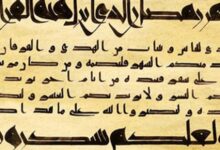 هر رمضان الذي انزل فيه القرا
للناس و بينات من الهدى و الفرقان
منكم الشهر فليصمه و من كان مريض
على سفر فعدة من ايام اخر يريد الله
اليسر و لا يريد بكم العسر و لتكملوا
و لتكبروا الله على ما هدا
لعلكم تشكرو